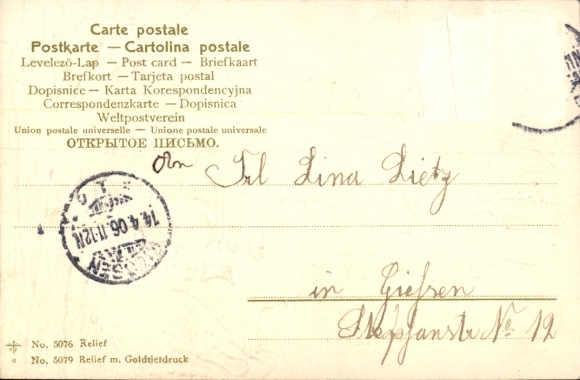 Carte postale
Postkarte — Cartolina postale
Levelező-Lap — Post card — Briefkaart
Brefkort — Tarjeta postal
Dopisnice — Karta Korespondencyjna
Correspondenzkarte — Dopisnica
Weltpostverein
Union postale universelle — Unione postale universale
ОТКРЫТОЕ ПИСЬМО.
Frl Lina Dietz
GIESSEN
14.4.06.11-12N
in Giessen
Stephanstr No. 12
No. 5076 Relief
No. 5079 Relief m. Goldtiefdruck